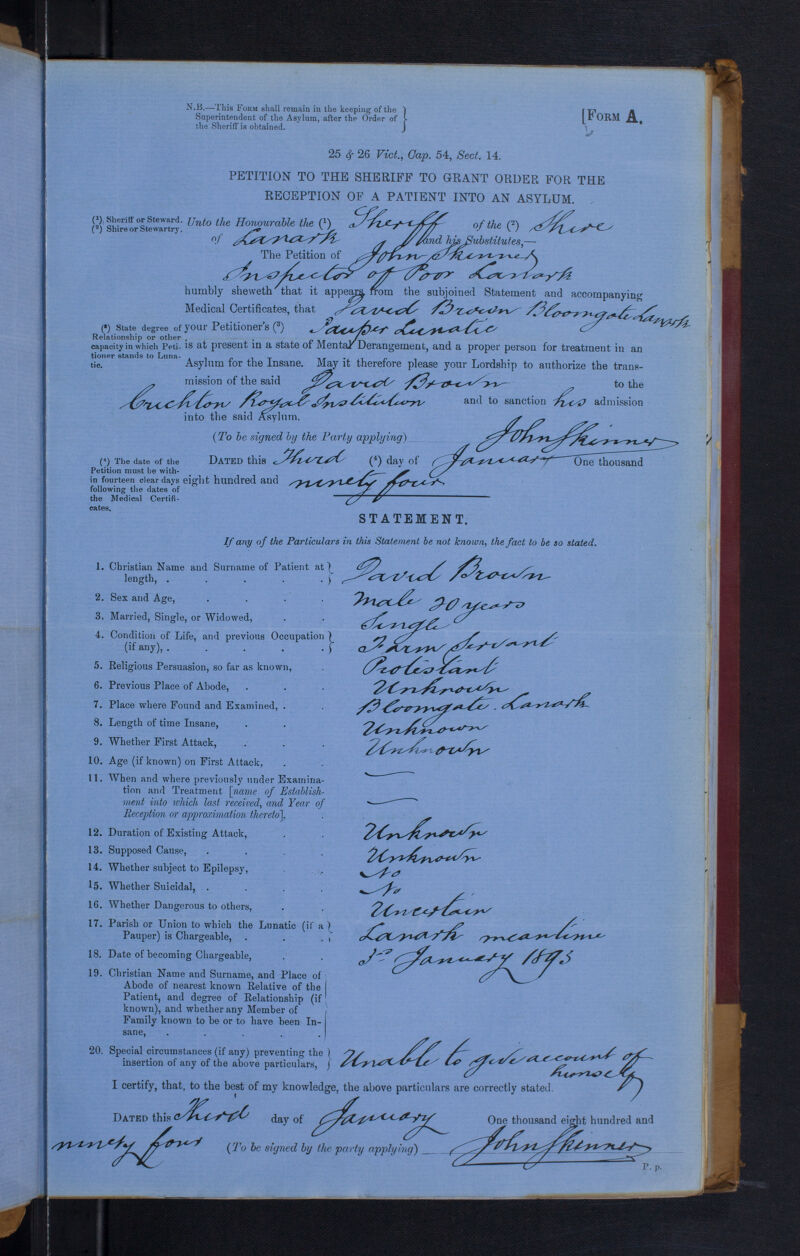 N.B.—This Form shall remain in the keeping of the
Superintendent of the Asylum, after the Order of
the Sheriff is obtained.
[Form A.
25 & 26 Vict., Cap. 54, Sect. 14.
PETITION TO THE SHERIFF TO GRANT ORDER FOR THE
RECEPTION OF A PATIENT INTO AN ASYLUM.
(1) Sheriff or Steward.
(2) Shire or Stewartry.
Unto the Honourable the (1) Sheriff of the (2) Shire
of Lanark and his Substitutes,—
The Petition of John Skinner
Inspector of Poor Lanark
humbly sheweth that it appears from the subjoined Statement and accompanying
Medical Certificates, that David Brown Bloomgate Lanark
(3) State degree of
Relationship or other
capacity in which Peti-
tioner stands to Luna-
tic.
your Petitioner's (3) Pauper Lunatic
is at present in a state of Mental Derangement, and a proper person for treatment in an
Asylum for the Insane. May it therefore please your Lordship to authorize the trans-
mission of the said David Brown to the
Crichton Royal Institution and to sanction his admission
into the said Asylum.
(To be signed by the Party applying) John Skinner
(4) The date of the
Petition must be with-
in fourteen clear days
following the dates of
the Medical Certifi-
cates.
Dated this Third (4) day of January One thousand
eight hundred and ninety four
STATEMENT.
If any of the Particulars in this Statement be not known, the fact to be so stated.
1. Christian Name and Surname of Patient at
length, . . . . . David Brown
2. Sex and Age, . . . Male 20 years
3. Married, Single, or Widowed, . . Single
4. Condition of Life, and previous Occupation
(if any), . . . . . Farm Servant
5. Religious Persuasion, so far as known, . Protestant
6. Previous Place of Abode, . . . Unknown
7. Place where Found and Examined, . . Bloomgate. Lanark
8. Length of time Insane, . . Unknown
9. Whether First Attack, . . . Unknown
10. Age (if known) on First Attack, . . —
11. When and where previously under Examina-
tion and Treatment [name of Establish-
ment into which last received, and Year of
Reception or approximation thereto], . —
12. Duration of Existing Attack, . . Unknown
13. Supposed Cause, . . . . Unknown
14. Whether subject to Epilepsy, . . No
15. Whether Suicidal, . . . . No
16. Whether Dangerous to others, . . Uncertain
17. Parish or Union to which the Lunatic (if a
Pauper) is Chargeable, . . . Lanark meantime
18. Date of becoming Chargeable, . . 3rd January 1893
19. Christian Name and Surname, and Place of
Abode of nearest known Relative of the
Patient, and degree of Relationship (if
known), and whether any Member of
Family known to be or to have been In-
sane, . . . . . .
20. Special circumstances (if any) preventing the
insertion of any of the above particulars, Unable to give account of
himself
I certify, that, to the best of my knowledge, the above particulars are correctly stated.
Dated this Third day of January One thousand eight hundred and
ninety four (To be signed by the party applying) John Skinner
P. p.